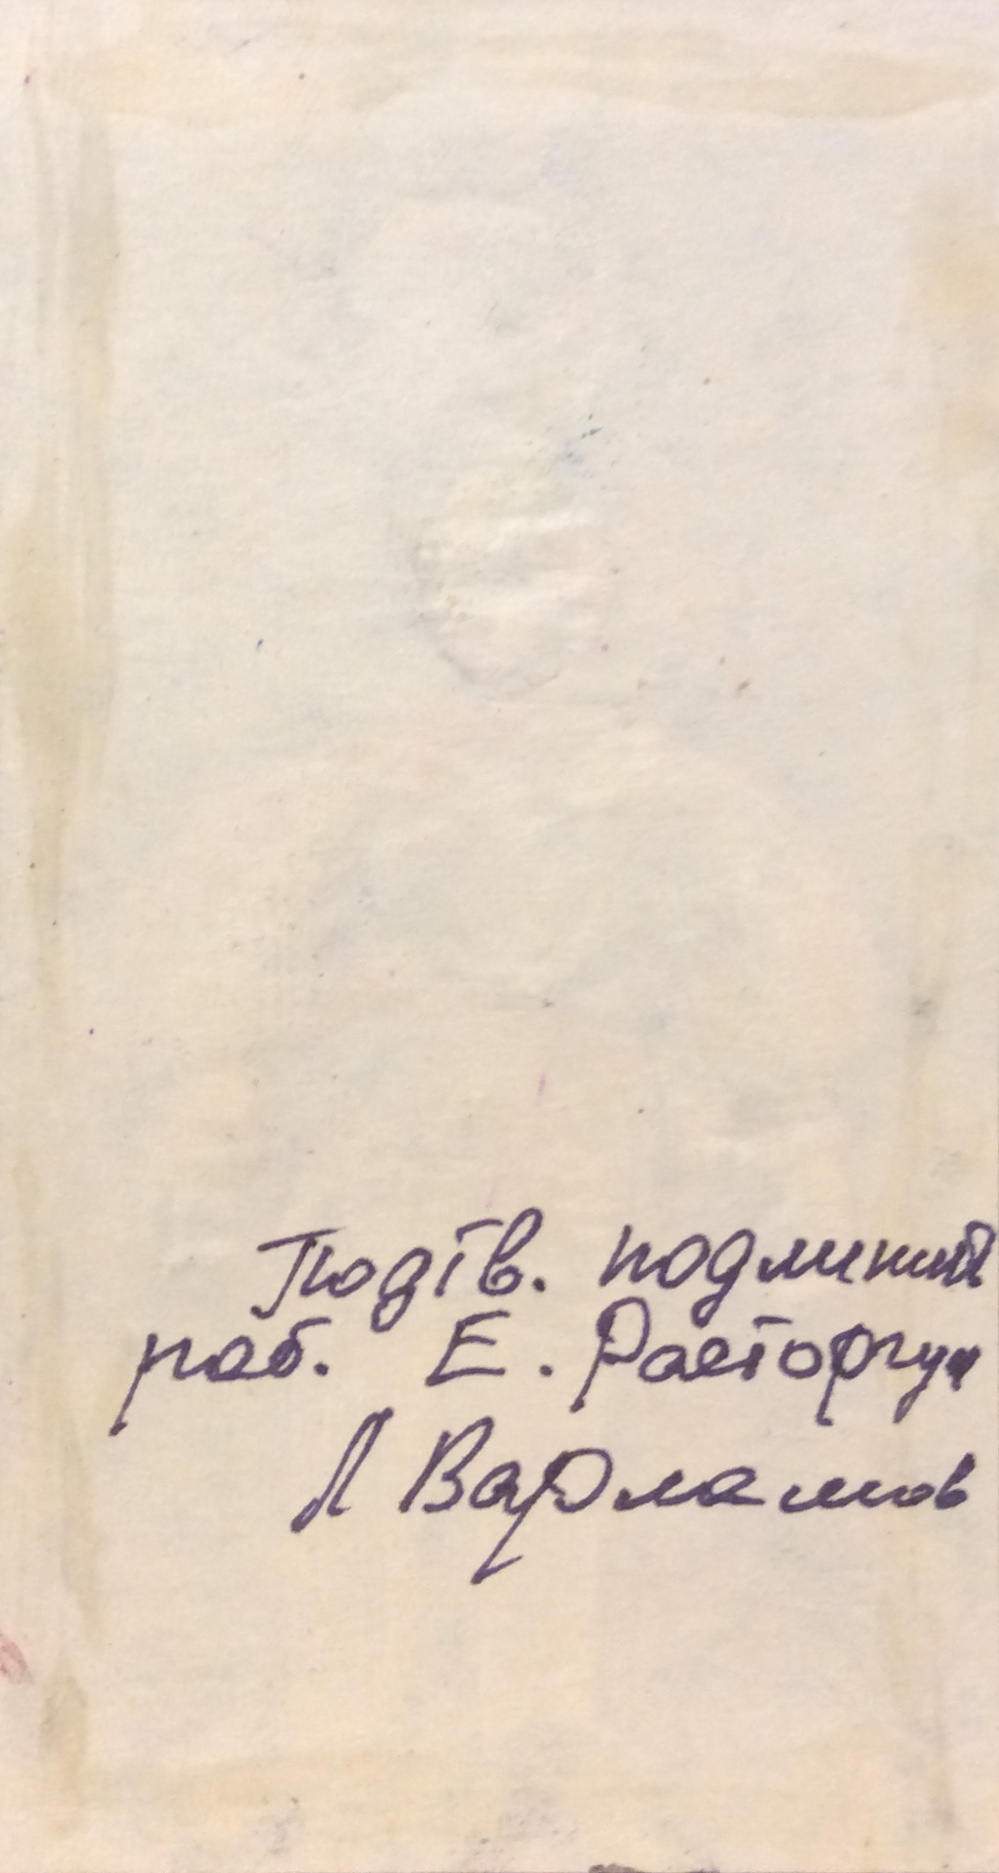 Подтв. подлинный
раб. Е. Расторгуи
Л Варламов